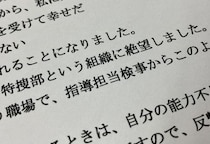 から、私は
を受けて幸せだ
ない
れることになりました。
特捜部という組織に絶望しました。
の職場で、指導担当検事からこのよ
るときは、自分の能力不
すので、反